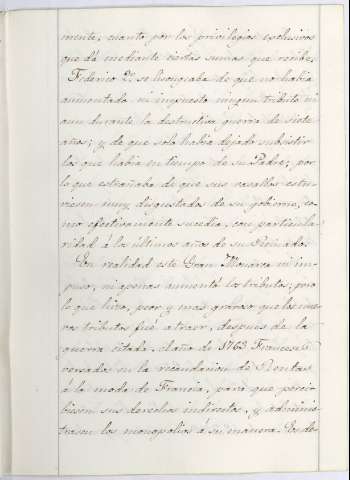 mente; cuanto por los privilegios esclusivos
que dá mediante ciertas sumas que recibe.
Federico 2º. se lisongeaba de que no habia
aumentado ni impuesto ningun tributo ni
aun durante la destructiva guerra de siete
años; y de que solo habia dejado subsistir
los que habia en tiempo de su Padre; por
lo que estrañaba de que sus vasallos estu-
viesen muy disgustados de su gobierno, co-
mo efectivamente sucedia, con particula-
ridad á los últimos años de su Reinado.
En realidad este Gran Monarca ni im-
puso, ni apenas aumentó los tributos; pero
lo que hizo, peor y mas gravoso que los nue-
vos tributos fué atraer, despues de la
guerra citada, el año de 1763 Franceses
versados en la recaudacion de Rentas
á la moda de Francia, para que perci-
biesen sus derechos indirectos, y adminis-
trasen los monopolios á su manera. Desde